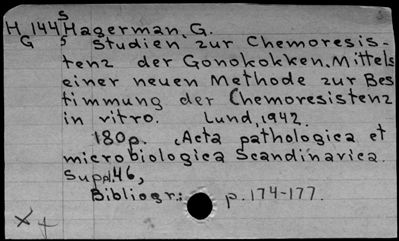 S
H 144 Hagerman, G.
G S Studien zur Chemoresis-
tenz der Gonokokken. Mittels
einer neuen Methode zur Bes
timmung der Chemoresistenz
in vitro. Lund, 1942.
180p. (Acta pathologica et
microbiologica Scandinavica.
Suppl. 46,
Bibliogr.: p. 174-177.